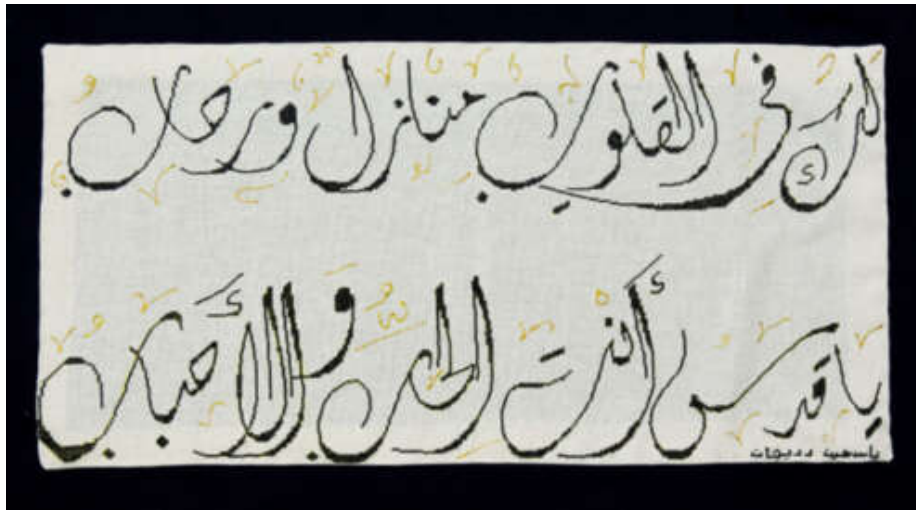 لك في القلوب منازل ورحاب
يا قدس أنت الحب والأحباب
ياسمين دديوان